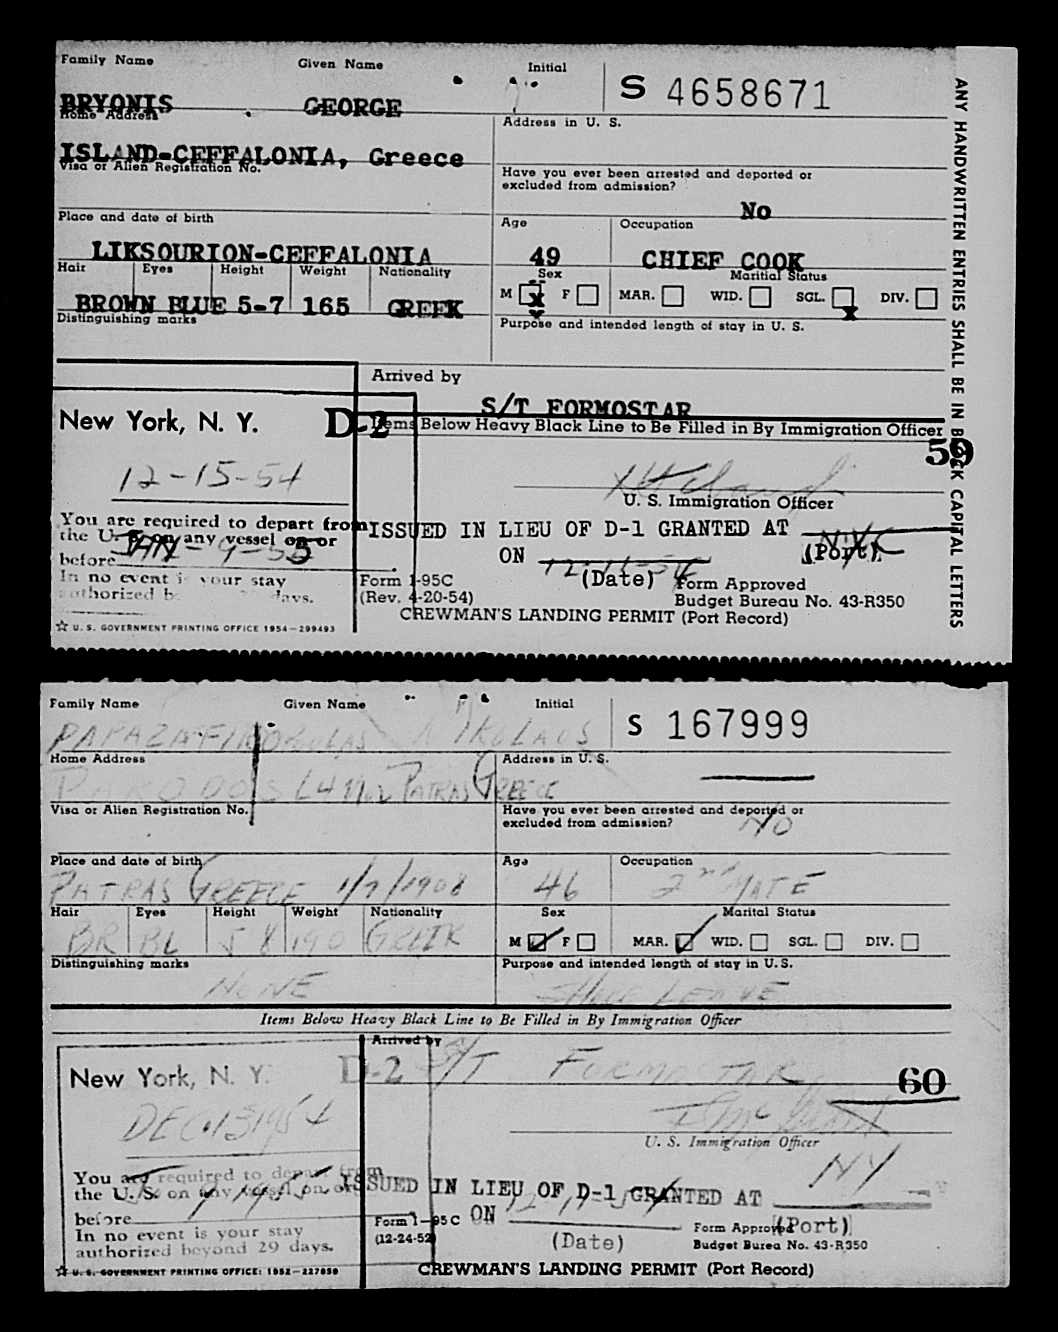 Family Name Given Name Initial S 4658671
BRYONIS GEORGE
Home Address Address in U. S.
ISLAND-CEFFALONIA, Greece
Visa or Alien Registration No. Have you ever been arrested and deported or
excluded from admission?
No
Place and date of birth Age Occupation
LIKSOURION-CEFFALONIA 49 CHIEF COOK
Hair Eyes Height Weight Nationality Sex Marital Status
BROWN BLUE 5-7 165 GREEK M x F MAR. WID. SGL. x DIV.
Distinguishing marks Purpose and intended length of stay in U. S.
Arrived by
S/T FORMOSTAR
New York, N. Y. D-2 Items Below Heavy Black Line to Be Filled in By Immigration Officer
59
12-15-54
U. S. Immigration Officer
You are required to depart from ISSUED IN LIEU OF D-1 GRANTED AT N.Y.
the U. S. on any vessel on or (Port)
before JAN-9-55 ON 12-15-54
In no event is your stay Form I-95C (Date) Form Approved
authorized days. (Rev. 4-20-54) Budget Bureau No. 43-R350
☆ U. S. GOVERNMENT PRINTING OFFICE 1954—299493 CREWMAN'S LANDING PERMIT (Port Record)
ANY HANDWRITTEN ENTRIES SHALL BE IN BLOCK CAPITAL LETTERS
Family Name Given Name Initial S 167999
NIKOLAOS
Home Address Address in U. S.
PATRAS GREECE
Visa or Alien Registration No. Have you ever been arrested and deported or
excluded from admission? NO
Place and date of birth Age Occupation
PATRAS GREECE 1/7/1908 46 2nd MATE
Hair Eyes Height Weight Nationality Sex Marital Status
BR BL 5 8 190 GREEK M F MAR. WID. SGL. DIV.
Distinguishing marks Purpose and intended length of stay in U. S.
NONE SHORE LEAVE
Items Below Heavy Black Line to Be Filled in By Immigration Officer
Arrived by
New York, N. Y. D-2 S/T FORMOSTAR 60
DEC 15 1954
U. S. Immigration Officer
NY
You are required to depart from
the U. S. on any vessel on or ISSUED IN LIEU OF D-1 GRANTED AT
before ON
In no event is your stay Form I-95C (Date) Form Approved (Port)
authorized beyond 29 days. (12-24-52) Budget Burea No. 43-R350
☆ U. S. GOVERNMENT PRINTING OFFICE: 1952—227850 CREWMAN'S LANDING PERMIT (Port Record)